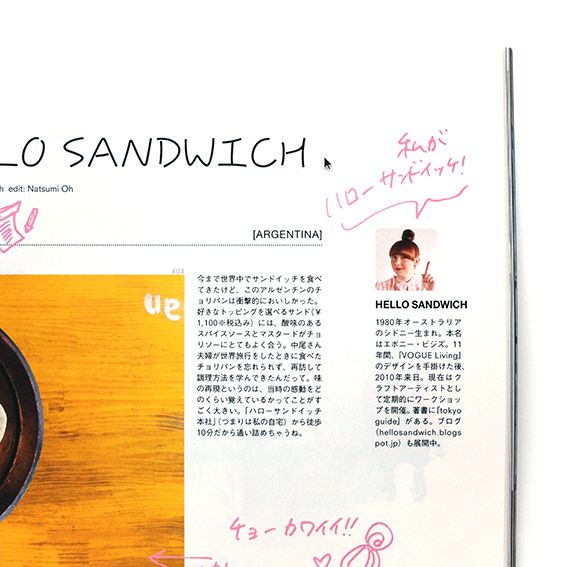 LO SANDWICH
h edit: Natsumi Oh
私が
ハローサンドイッチ!
[ARGENTINA]
#01
今まで世界中でサンドイッチを食べ
てきたけど、このアルゼンチンのチ
ョリパンは衝撃的においしかった。
好きなトッピングを選べるサンド(¥
1,100※税込み)には、酸味のある
スパイスソースとマスタードがチョ
リソーにとてもよく合う。中尾さん
夫婦が世界旅行をしたときに食べた
チョリパンを忘れられず、再訪して
調理方法を学んできたんだって。味
の再現というのは、当時の感動をど
のくらい覚えているかってことがす
ごく大きい。「ハローサンドイッチ
本社」(つまりは私の自宅)から徒歩
10分だから通い詰めちゃうね。
HELLO SANDWICH
1980年オーストラリア
のシドニー生まれ。本名
はエボニー・ビジズ。11
年間、『VOGUE Living』
のデザインを手掛けた後、
2010年来日。現在はク
ラフトアーティストとし
て定期的にワークショッ
プを開催。著書に『tokyo
guide』がある。ブログ
(hellosandwich.blogs
pot.jp)も展開中。
チョーカワイイ!!